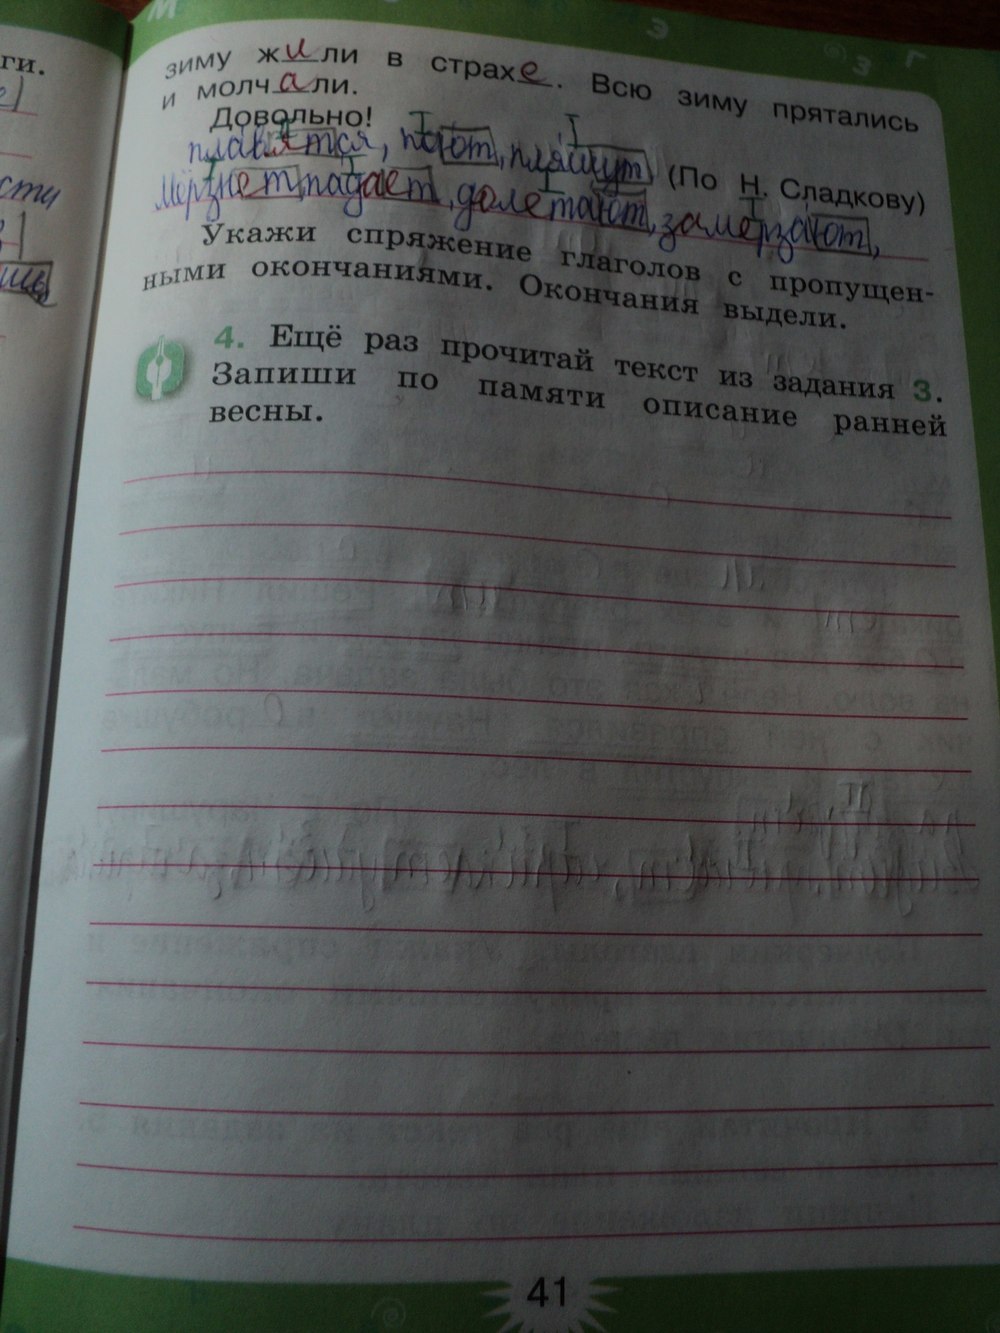 ги.
зиму жили в страхе. Всю зиму прятались
и молчали.
Довольно!
плавятся, поют, пляшут (По Н. Сладкову)
Мёрзнет, падает, долетают, замерзают,
Укажи спряжение глаголов с пропущен-
ными окончаниями. Окончания выдели.
4. Ещё раз прочитай текст из задания 3.
Запиши по памяти описание ранней
весны.
41